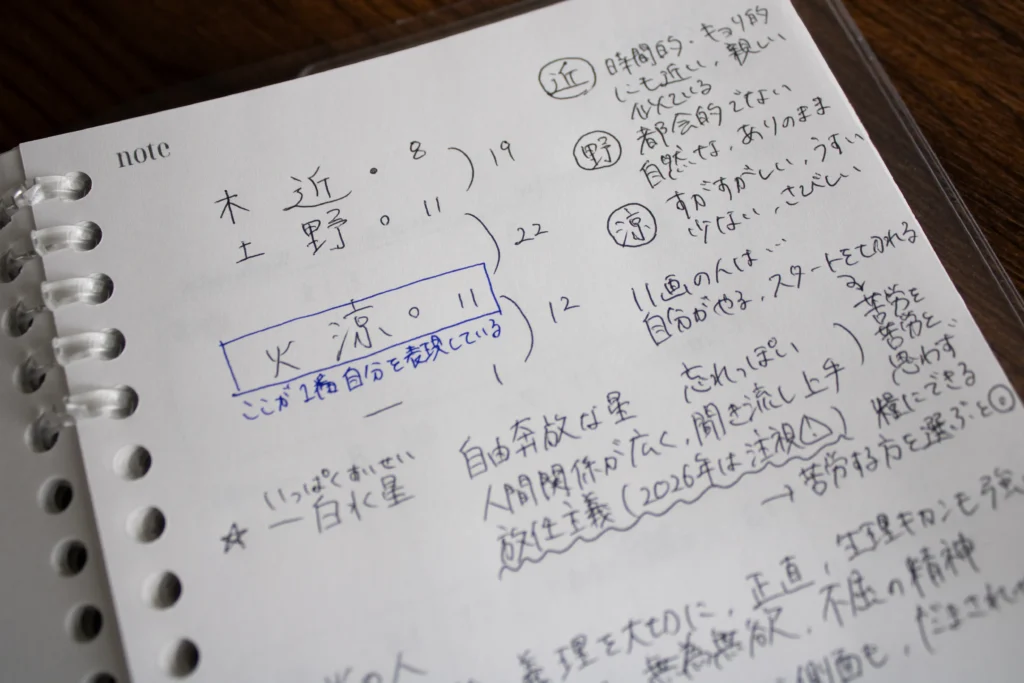 note
木 近 • 8
19
土 野 ○ 11
22
火 涼 ○ 11
12
ここが1番自分を表現している
1
近 時間的・キョリ的
にも近い，親しい
似ている
野 都会的でない
自然な，ありのまま
涼 すがすがしい，うすい
少ない，さびしい
11画の人は…
自分がやる，スタートを切れる
苦労を
苦労と
思わず
糧にできる
いっぱくすいせい
☆ 一白水星
自由奔放な星 忘れっぽい
人間関係が広く，聞き流し上手
放任主義（2026年は注視△）
→ 苦労する方を選ぶと◎
義理を大切に，正直，生理キカンも強
無為無欲，不屈の精神
の人
側面も，だまされ